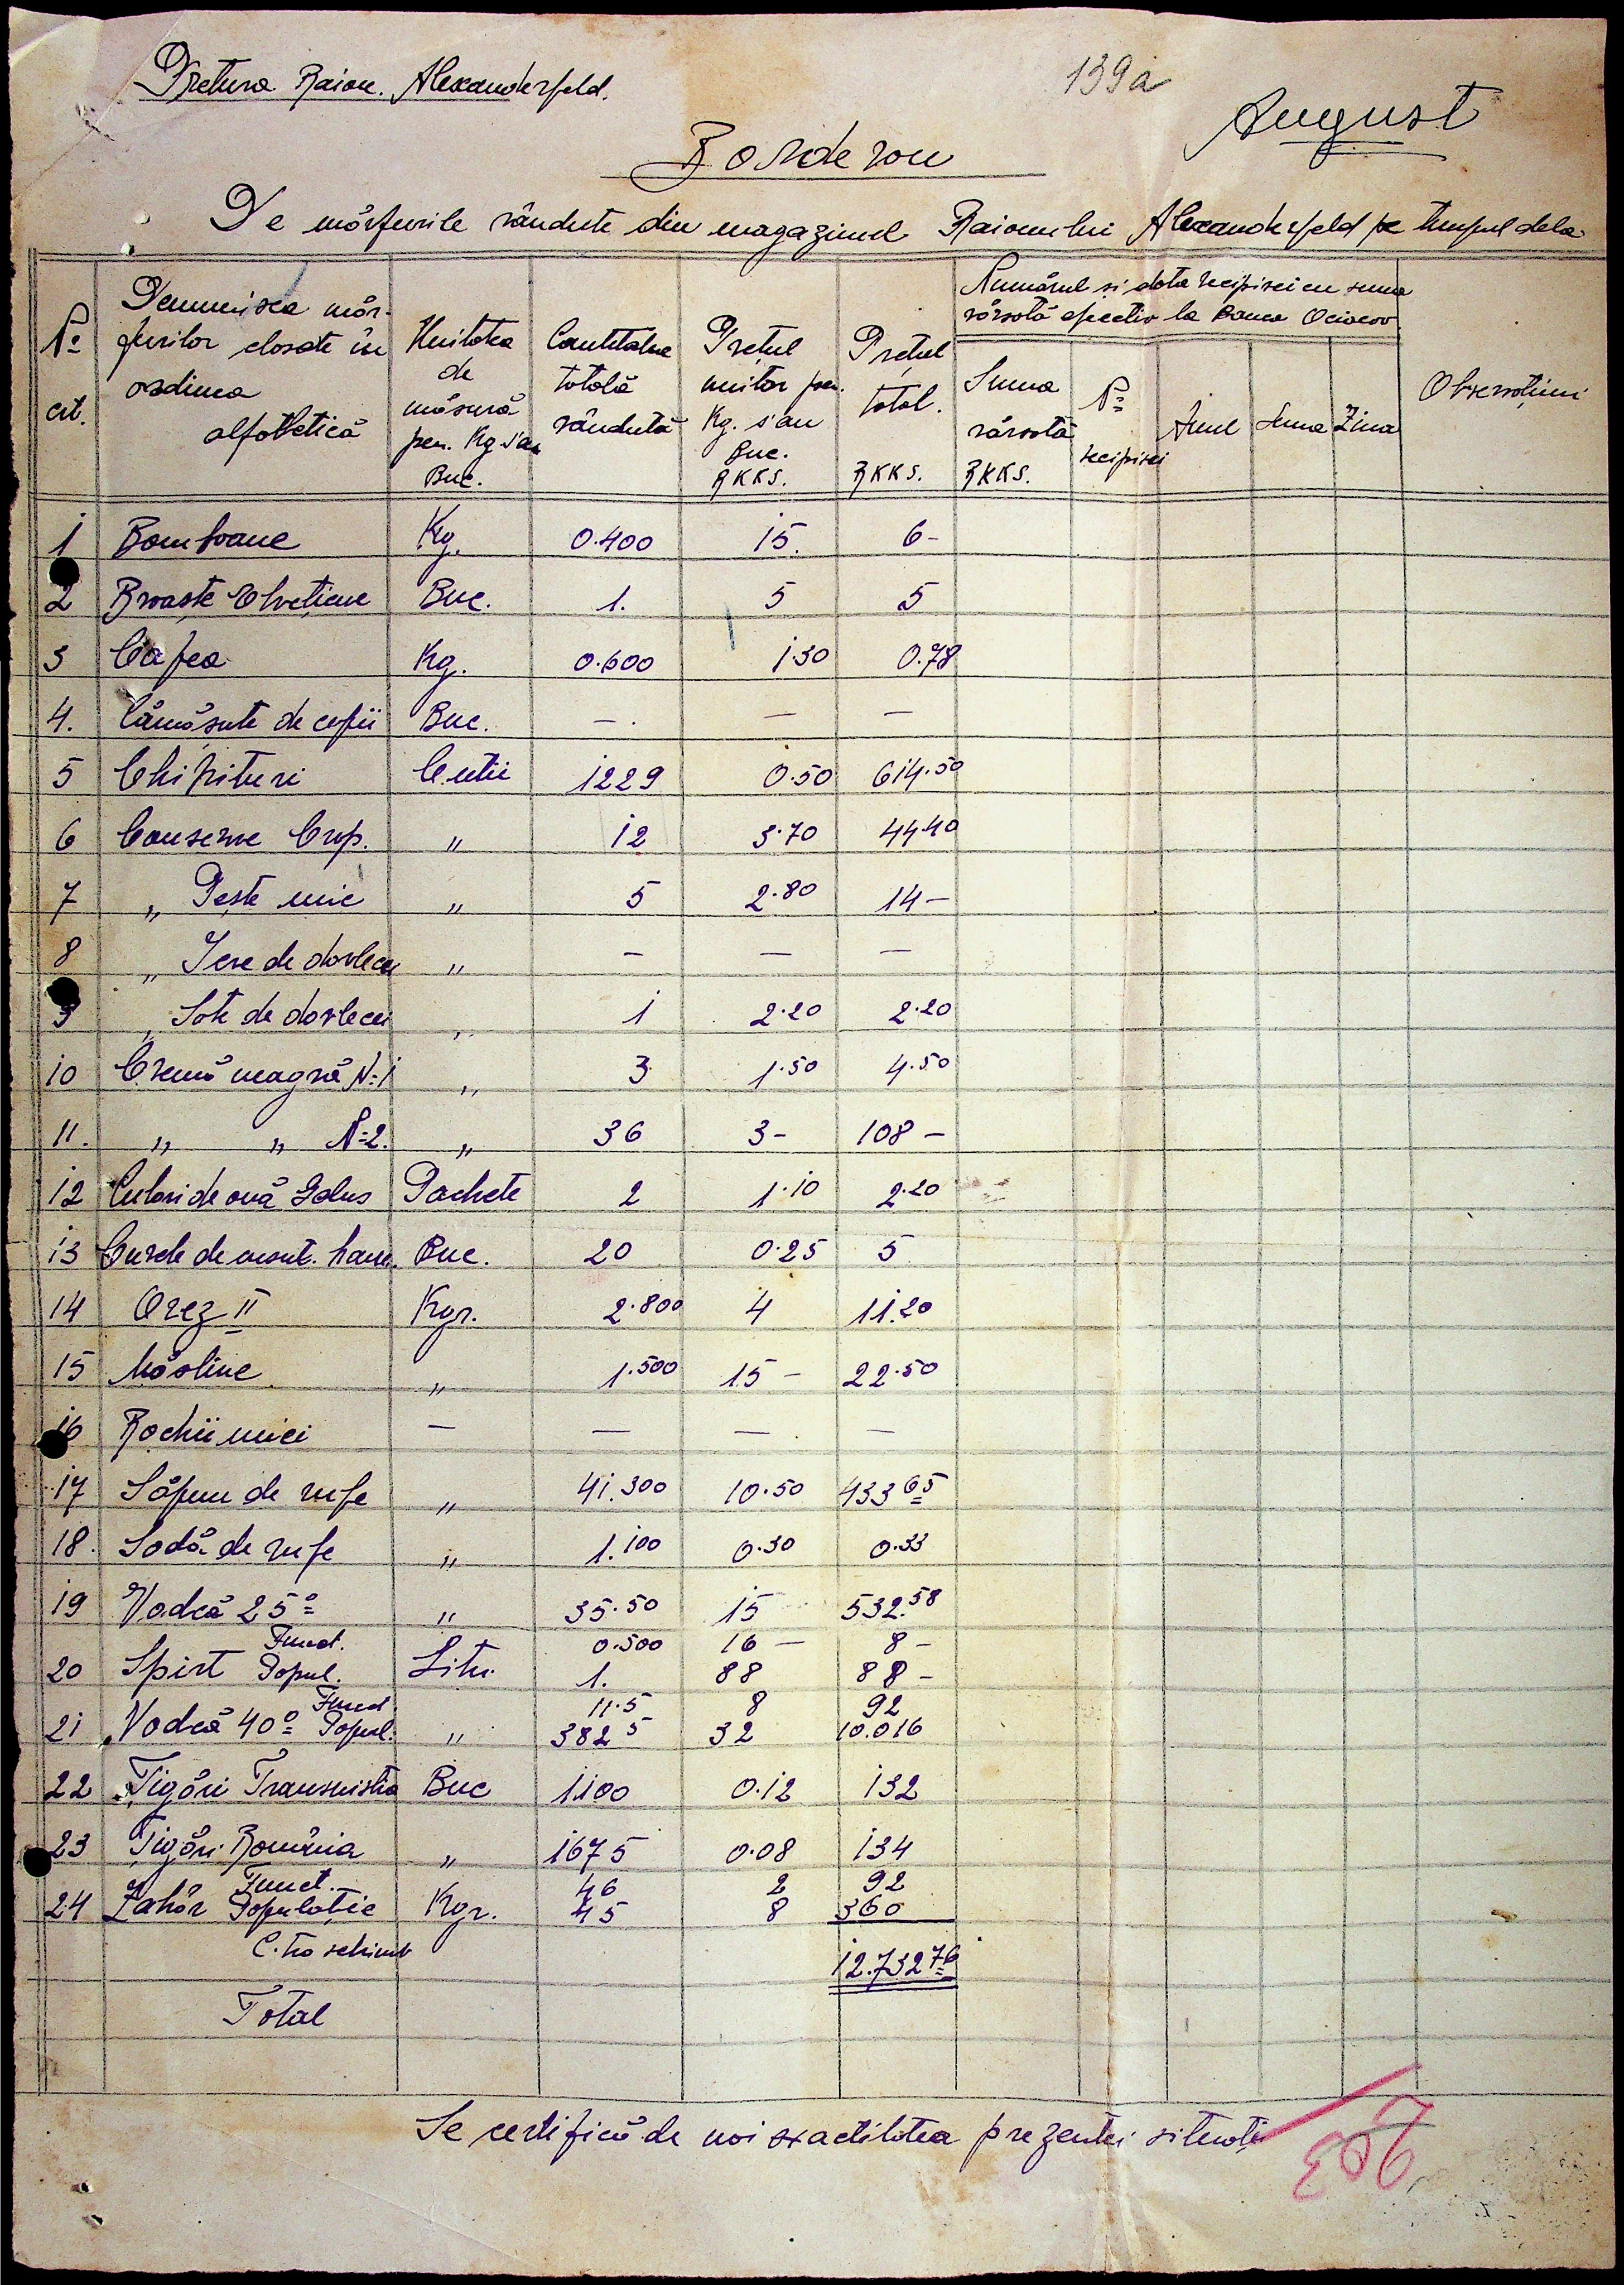 Pretura Raion. Alexanderfeld.
139a
August
Borderou
De mărfurile vândute din magazinul Raionului Alexanderfeld pe timpul dela
No crt. | Denumirea mărfurilor clasate în ordinea alfabetică | Unitatea de măsură pen. Kg s'au Buc. | Cantitatea totală vândută | Prețul unitar pen. Kg. s'au Buc. RKKS. | Prețul total. RKKS. | Numărul și data recipisei cu suma vărsată efectiv la Banca Oceacov | Observațiuni
Suma vărsată RKKS. | No recipisei | Anul | Luna | Ziua
1 Bomboane Kg. 0.400 15. 6-
2 Broaște Elvețiene Buc. 1. 5 5
3 Cafea Kg. 0.600 1.30 0.78
4. Cămășute de copii Buc. — — —
5 Chibrituri Cutii 1229 0.50 614.50
6 Conserve Crap. " 12 3.70 44.40
7 " Pește mic " 5 2.80 14-
8 " Icre de dovlecei " — — —
9 " Sote de dovlecei " 1 2.20 2.20
10 Cremă neagră No 1 " 3 1.50 4.50
11. " " No 2. " 36 3- 108-
12 Culori de ouă Pachete 2 1.10 2.20
13 Curele de mont. Buc. 20 0.25 5
14 Orez II Kgr. 2.800 4 11.20
15 Măsline " 1.500 15- 22.50
16 Rochii mici — — — —
17 Săpun de rufe " 41.300 10.50 433 65
18. Sodă de rufe " 1.100 0.30 0.33
19 Vodcă 25° " 35.50 15 532.58
Funct. 0.500 16- 8-
20 Spirt Popul. Litri 1. 88 88-
Funct 11.5 8 92
21 Vodcă 40° Popul. " 382 5 32 10.016
22 Țigări Transnistria Buc 1100 0.12 132
23 Țigări România " 1675 0.08 134
Funct. 46 2 92
24 Zahăr Populație Kgr. 45 8 360
C. tra schimb
12.732 76
Total
Se certifică de noi exactitatea prezentei situații